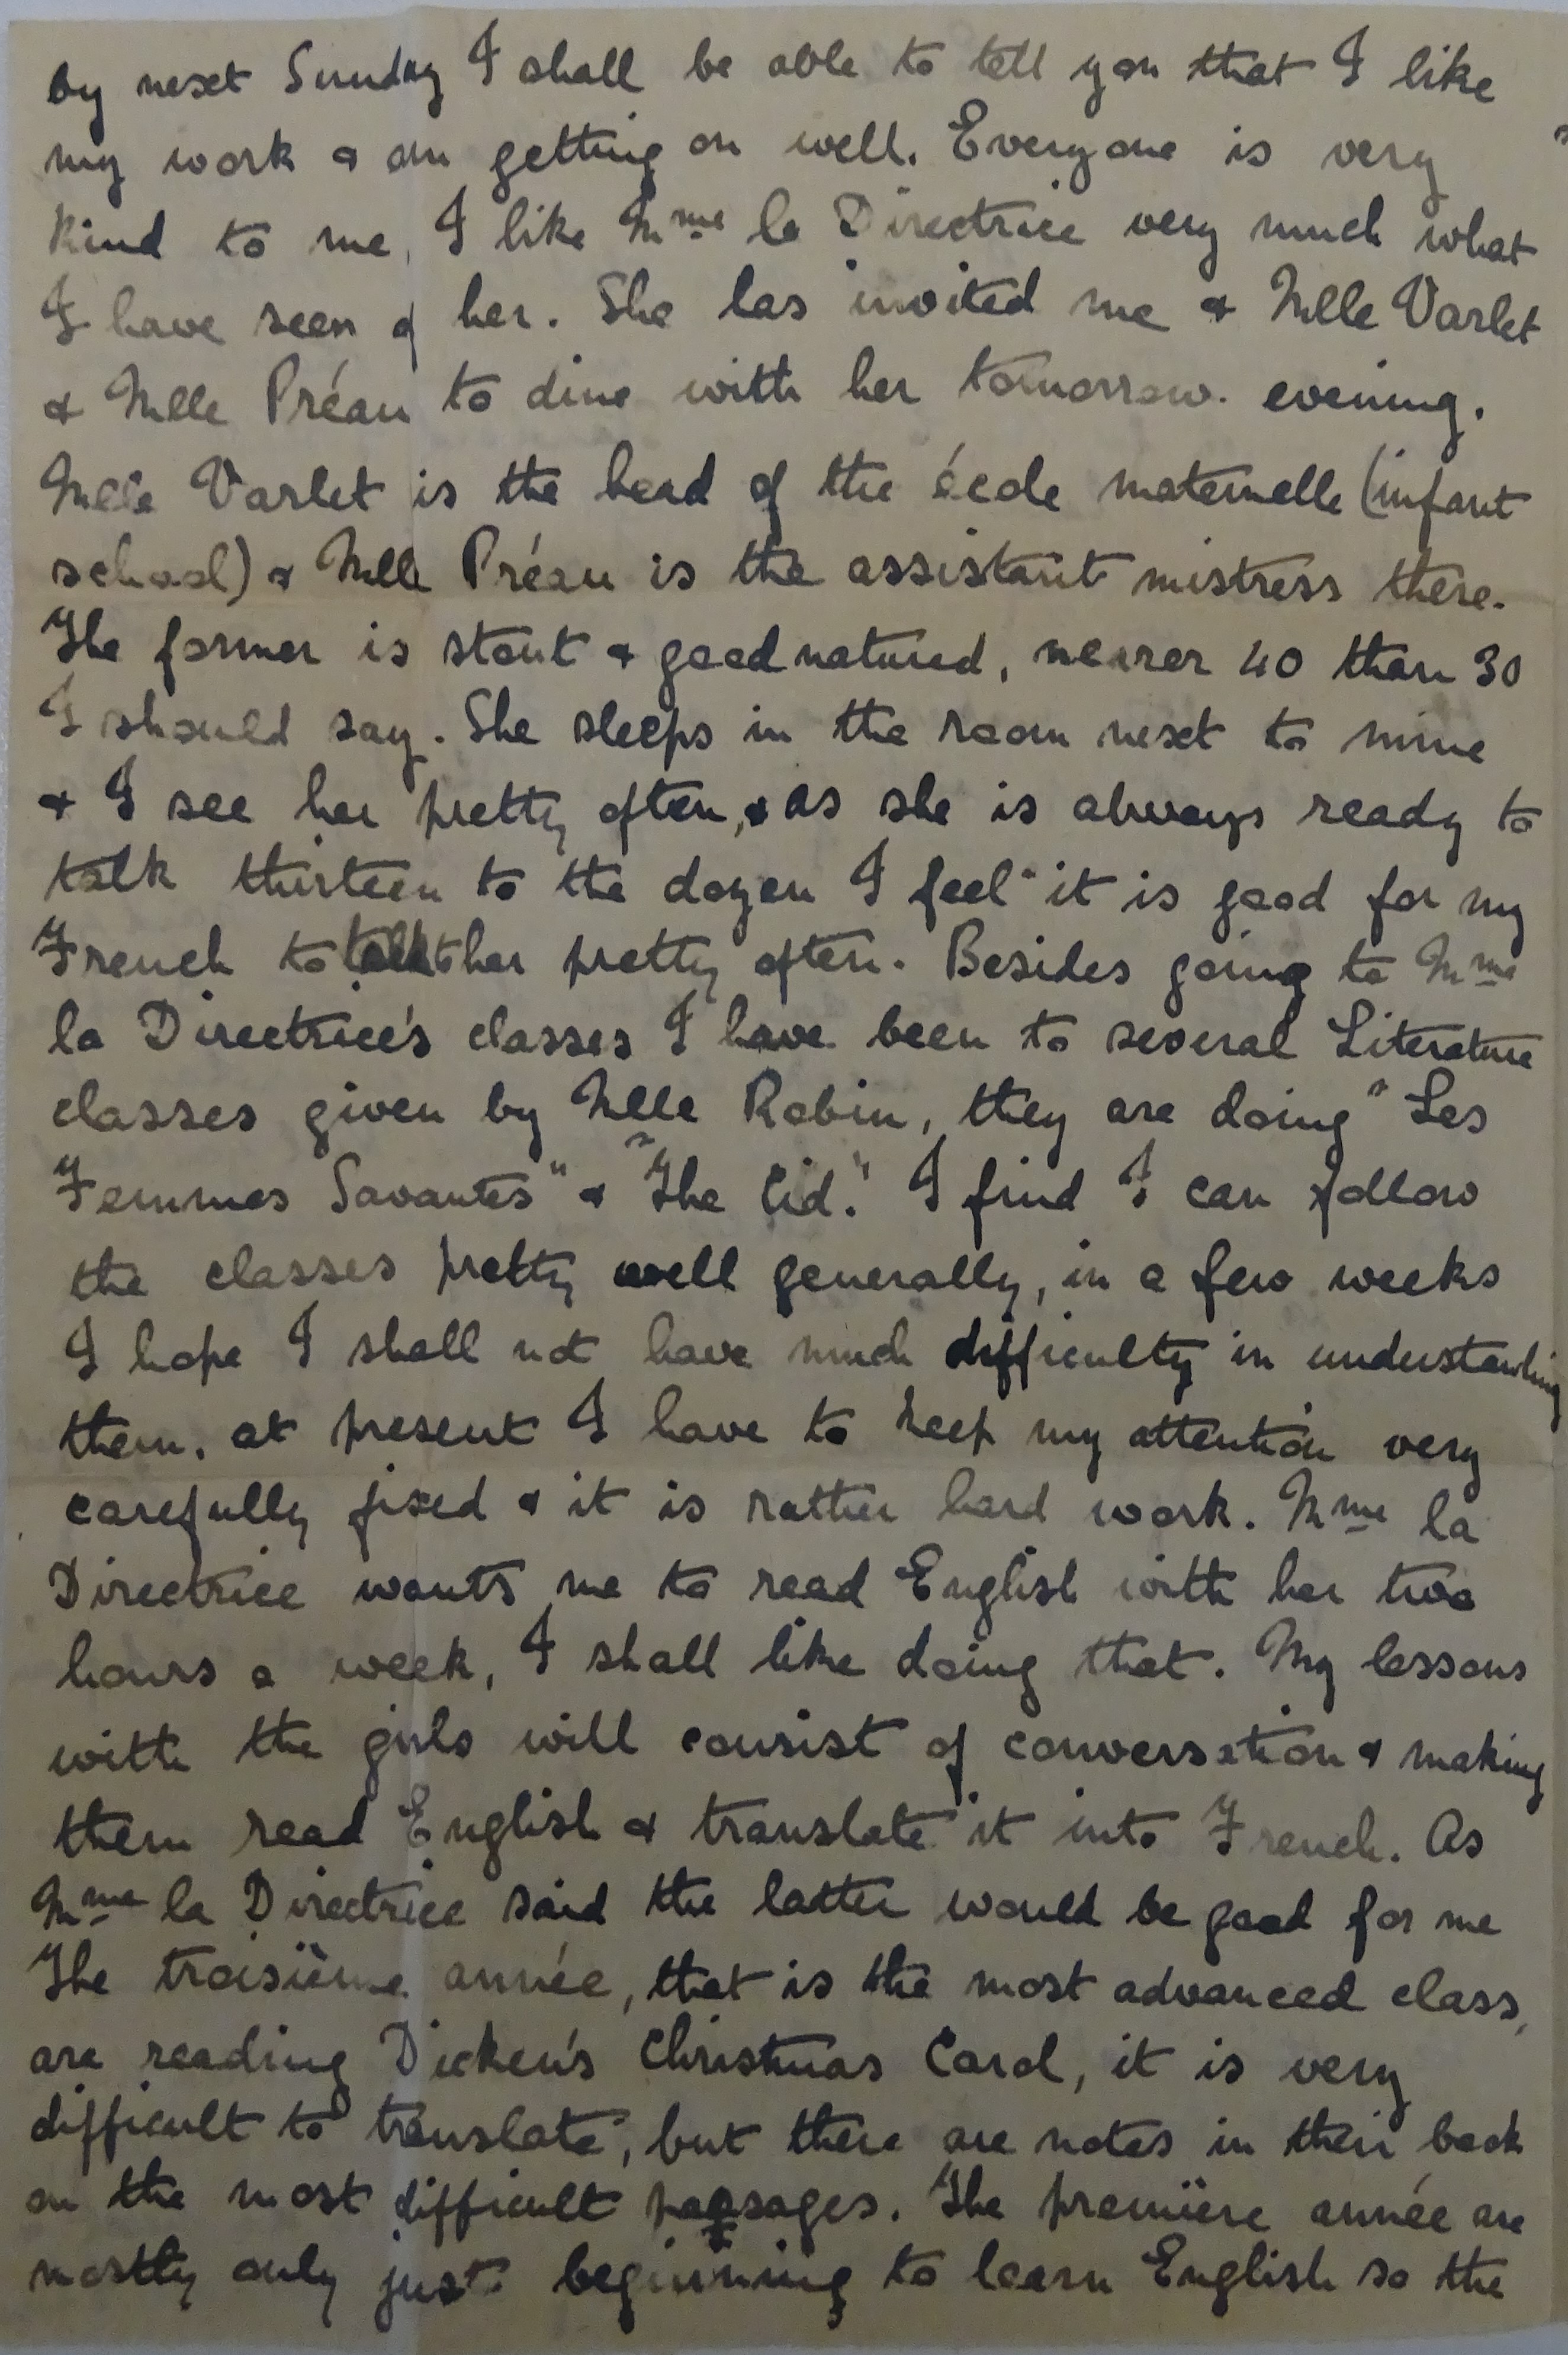 by next Sunday I shall be able to tell you that I like
my work & am getting on well. Everyone is very
kind to me, I like Mme la Directrice very much what
I have seen of her. She has invited me & Mlle Varlet
& Mlle Préau to dine with her tomorrow. evening.
Mlle Varlet is the head of the école maternelle (infant
school) & Mlle Préau is the assistant mistress there.
The former is stout & good natured, nearer 40 than 30
I should say. She sleeps in the room next to mine
& I see her pretty often, & as she is always ready to
talk thirteen to the dozen I feel it is good for my
French to talk to her pretty often. Besides going to Mme
la Directrice's classes I have been to several Literature
classes given by Mlle Robin, they are doing "Les
Femmes Savantes" & "The Cid." I find I can follow
the classes pretty well generally, in a few weeks
I hope I shall not have much difficulty in understanding
them. at present I have to keep my attention very
carefully fixed & it is rather hard work. Mme la
Directrice wants me to read English with her two
hours a week, I shall like doing that. My lessons
with the girls will consist of conversation & making
them read English & translate it into French. As
Mme la Directrice said the latter would be good for me
The troisième année, that is the most advanced class,
are reading Dicken's Christmas Carol, it is very
difficult to translate, but there are notes in their book
on the most difficult passages. The première année are
mostly only just beginning to learn English so the